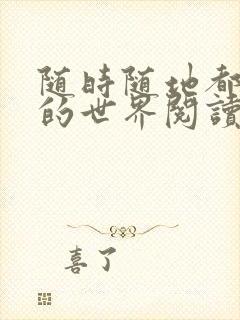 随時随地都
的世界閱讀
喜了